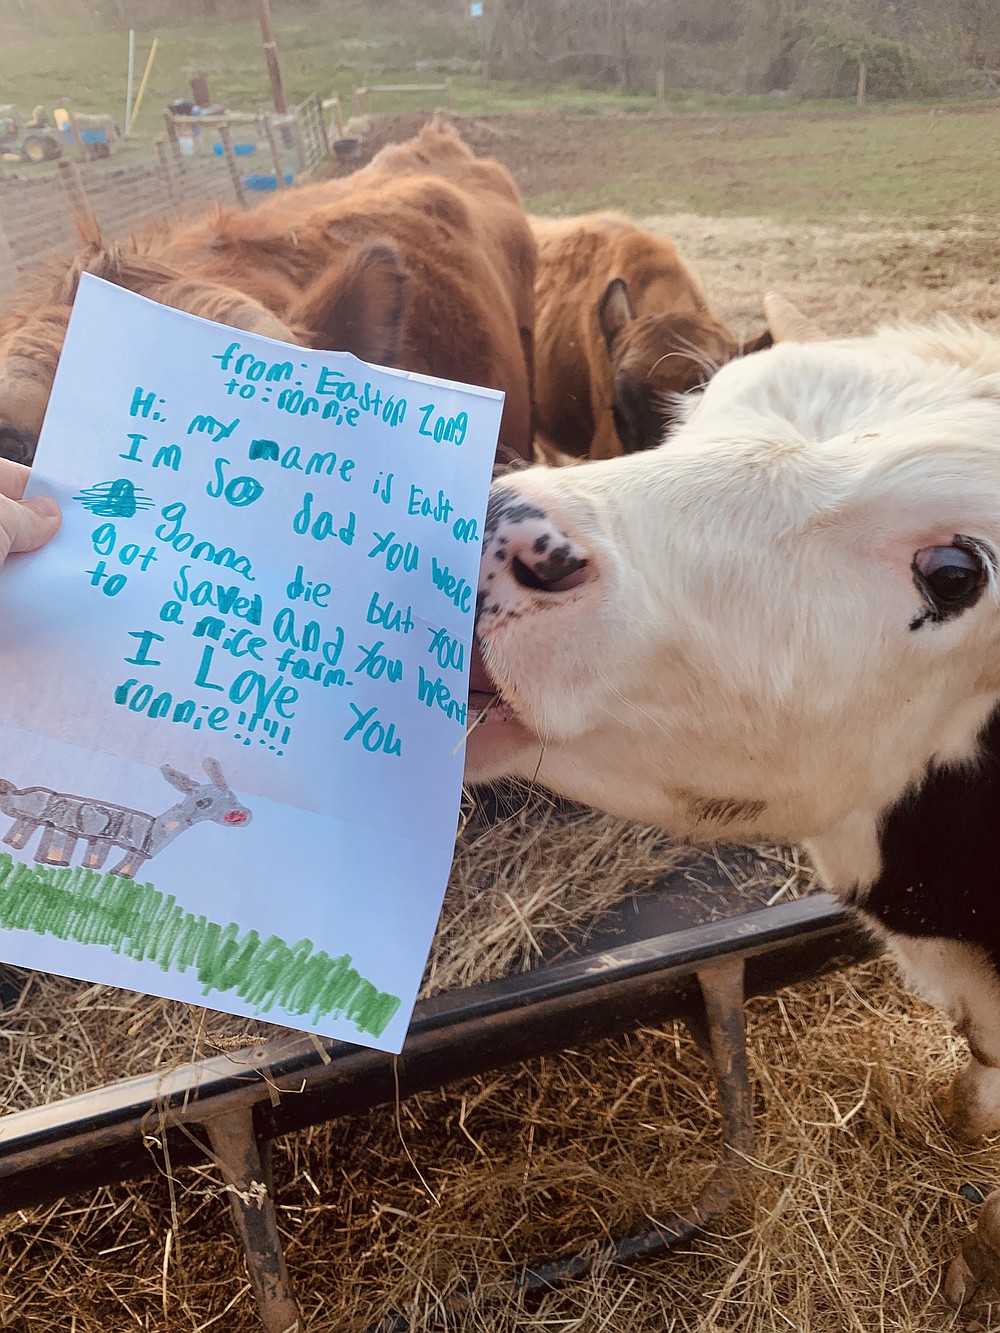 from: Easton Zong
to: ronnie
Hi. my name is Easton.
Im So sad you were
gonna die but you
got saved and you went
to a nice farm.
I Love you
ronnie!!!!!